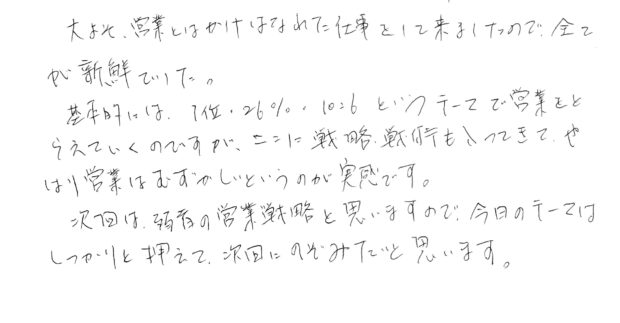 大よそ、営業とはかけはなれた仕事をして来ましたので、全て
が新鮮でした。
基本的には、1位・26%・10:6というテーマで営業をと
らえていくのですが、ここに戦略、戦術も入ってきて、や
はり営業はむずかしいというのが実感です。
次回は、弱者の営業戦略と思いますので、今日のテーマは
しっかりと押えて、次回にのぞみたいと思います。